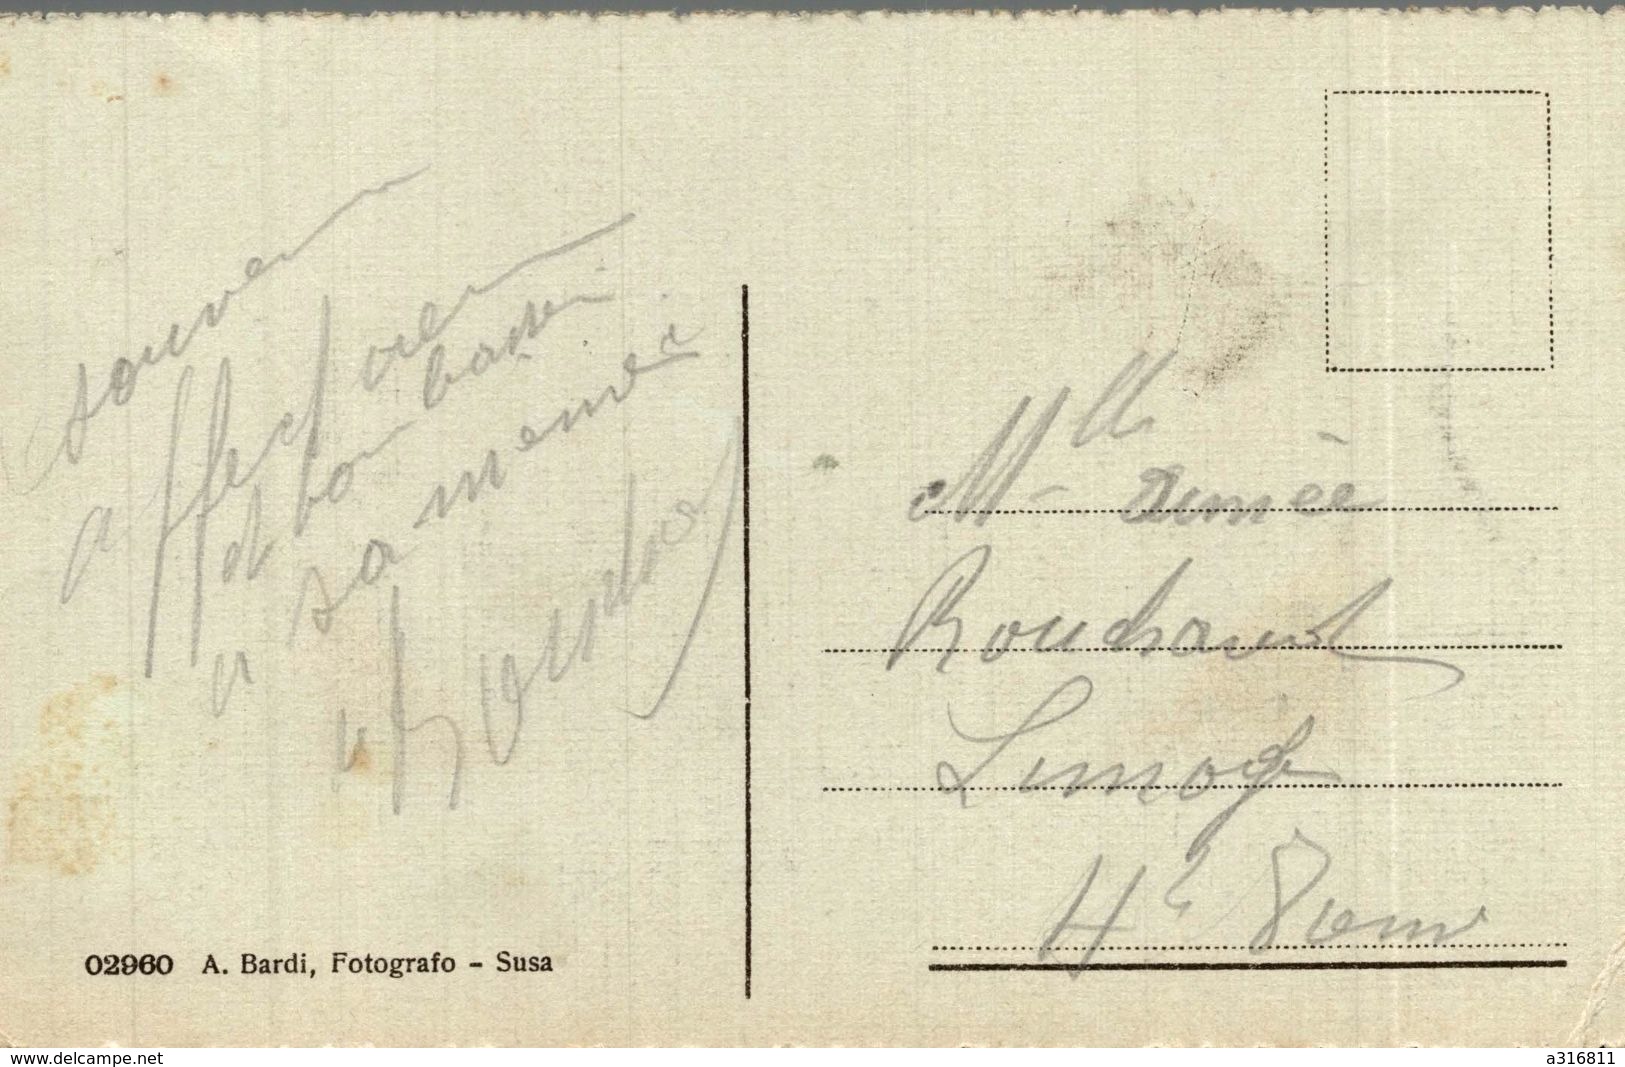 souvenir
affectueux
et bon baiser
a sa
Mlle Aimèe
Rouchaud
Limoge
Hte Vienne
02960 A. Bardi, Fotografo - Susa
www.delcampe.net
a316811